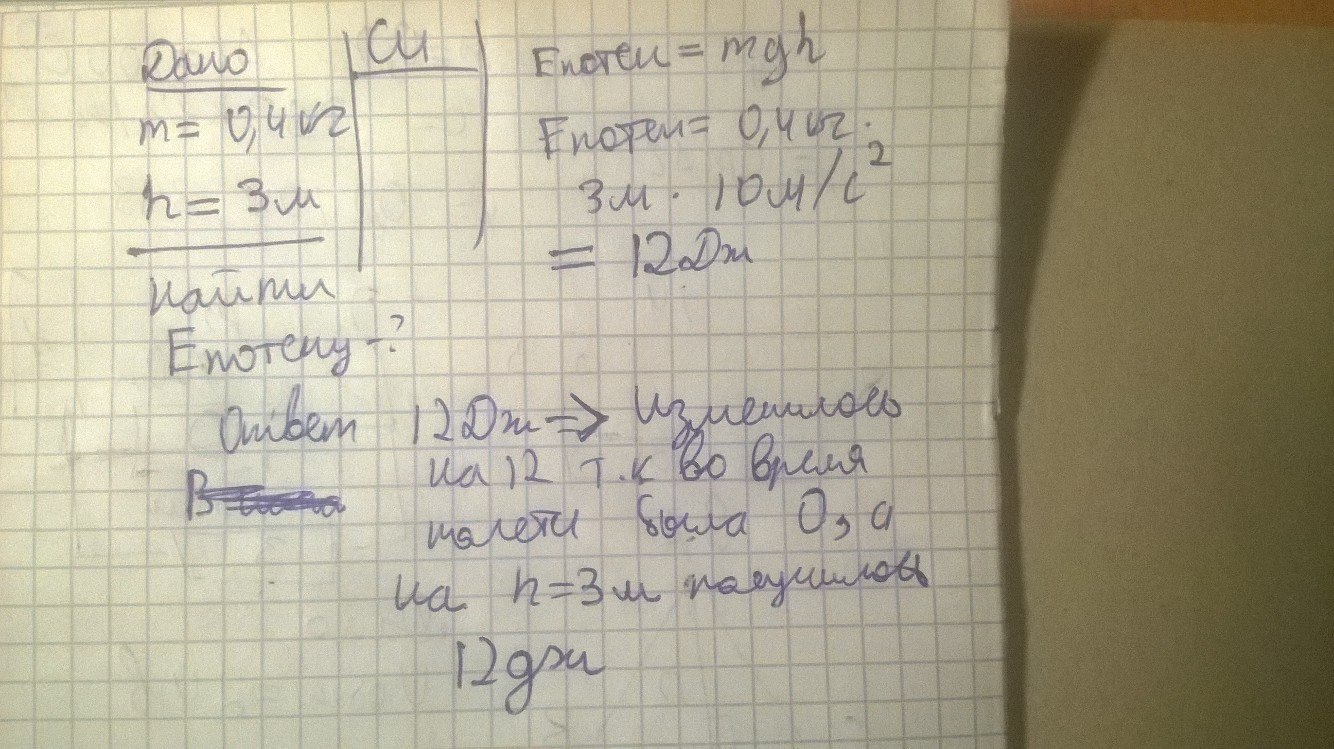 Дано
СИ
m = 0,4 кг
h = 3 м
Найти
Епотенц - ?
Епотен = mgh
Епотен = 0,4 кг ·
3 м · 10 м/с²
= 12 Дж
Ответ 12 Дж => Изменилось
на 12 т.к во время
была 0, а
на h = 3 м получилось
12 дж